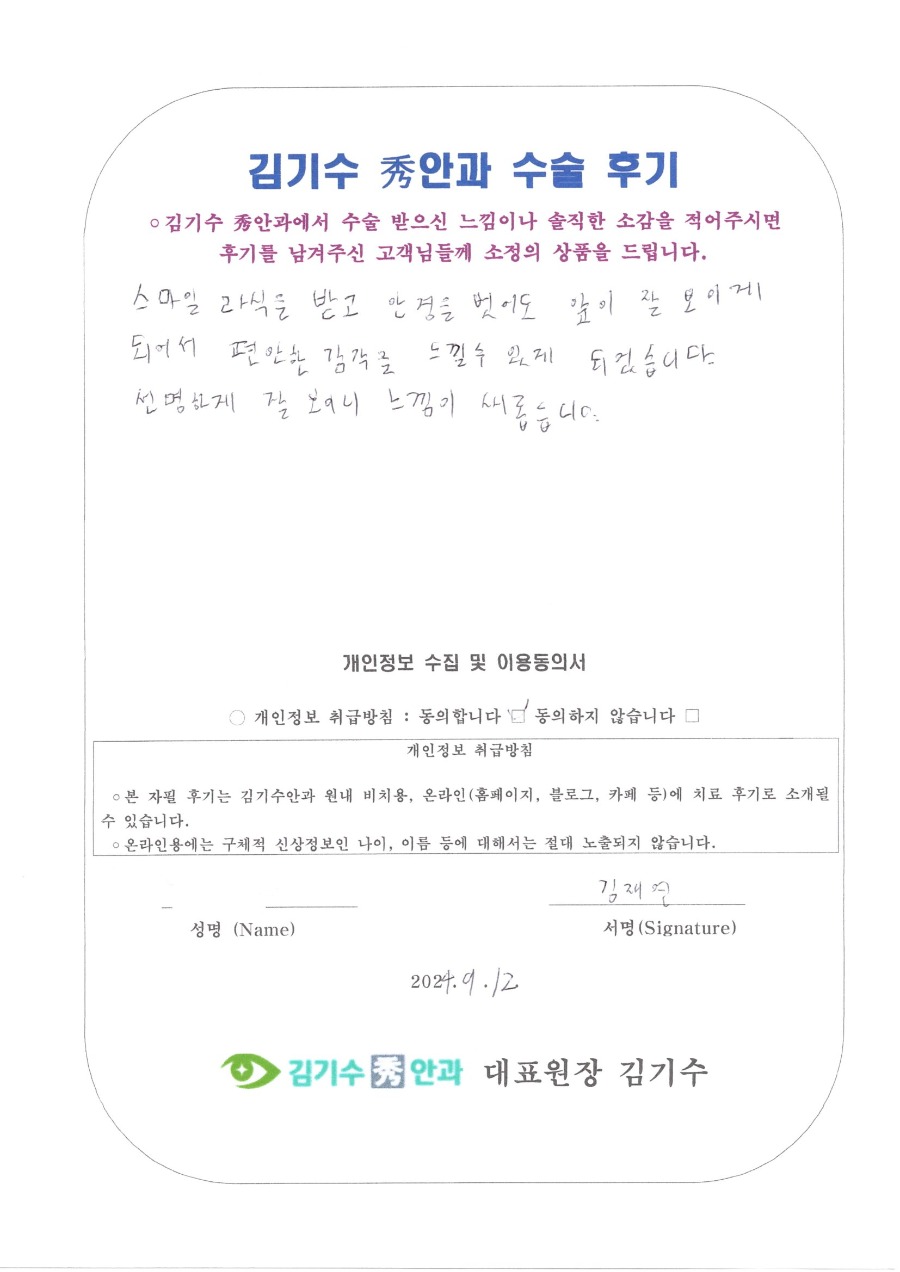 김기수 秀안과 수술 후기
○김기수 秀안과에서 수술 받으신 느낌이나 솔직한 소감을 적어주시면
후기를 남겨주신 고객님들께 소정의 상품을 드립니다.
스마일 라식을 받고 안경을 벗어도 앞이 잘 보이게
되어서 편안한 감각을 느낄수 있게 되겠습니다.
선명하게 잘 보이니 느낌이 새롭습니다.
개인정보 수집 및 이용동의서
○ 개인정보 취급방침 : 동의합니다 ☑ 동의하지 않습니다 □
개인정보 취급방침
○본 자필 후기는 김기수안과 원내 비치용, 온라인(홈페이지, 블로그, 카페 등)에 치료 후기로 소개될
수 있습니다.
○온라인용에는 구체적 신상정보인 나이, 이름 등에 대해서는 절대 노출되지 않습니다.
김재연
성명 (Name) 서명(Signature)
2024.9.12
김기수 秀 안과 대표원장 김기수